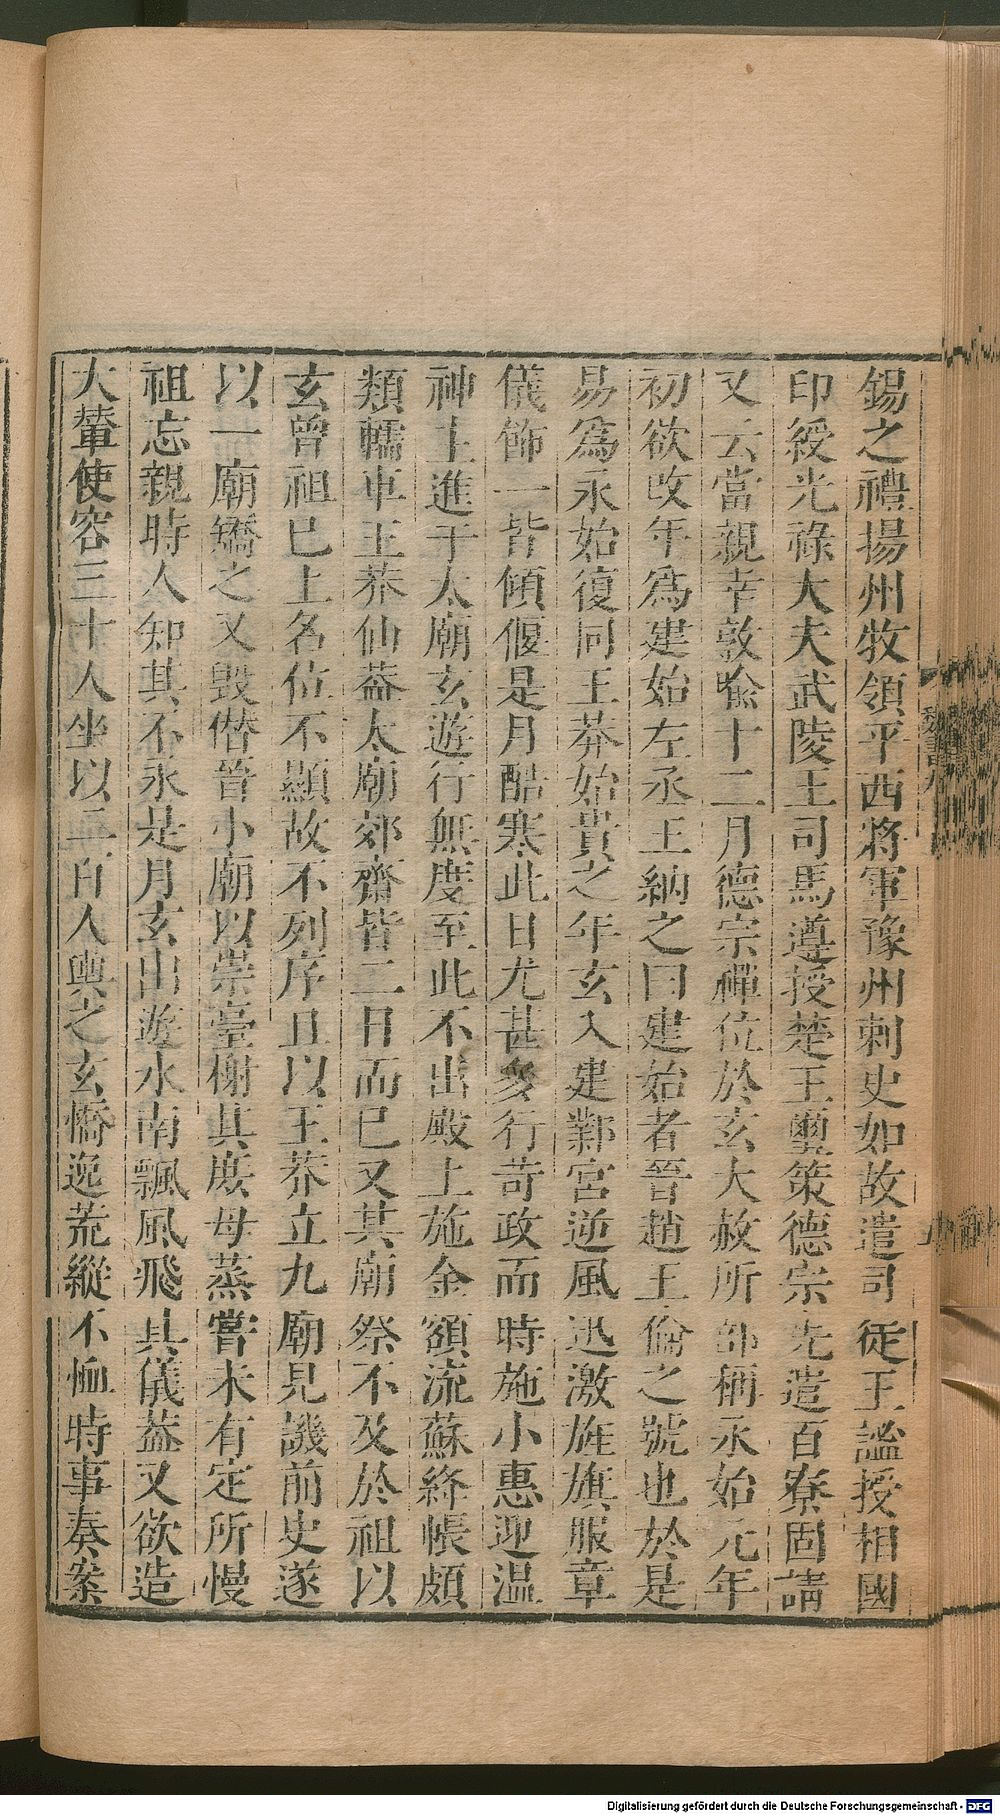 錫之禮揚州牧領平西將軍豫州刺史如故遣司徒王謐授相國
印綬光祿大夫武陵王司馬遵授楚王璽策德宗先遣百寮固請
又云當親幸敦喻十二月德宗禪位於玄大赦所部稱永始元年
初欲改年爲建始左丞王納之曰建始者晉趙王倫之號也於是
易爲永始復同王莽始貴之年玄入建鄴宮逆風迅激旌旗服章
儀飾一皆傾偃是月酷寒此日尤甚多行苛政而時施小惠迎溫
神主進于太廟玄遊行無度至此不出殿上施金額流蘇絳帳頗
類轜車王莽仙蓋太廟郊齋皆二日而已又其廟祭不及於祖以
玄曾祖已上名位不顯故不列序且以王莽立九廟見譏前史遂
以一廟矯之又毀僭晉小廟以崇臺榭其庶母蒸嘗未有定所慢
祖忘親時人知其不永是月玄出遊水南飄風飛其儀蓋又欲造
大輦使容三十人坐以二百人輿之玄憍逸荒縱不恤時事奏案
Digitalisierung gefördert durch die Deutsche Forschungsgemeinschaft - DFG